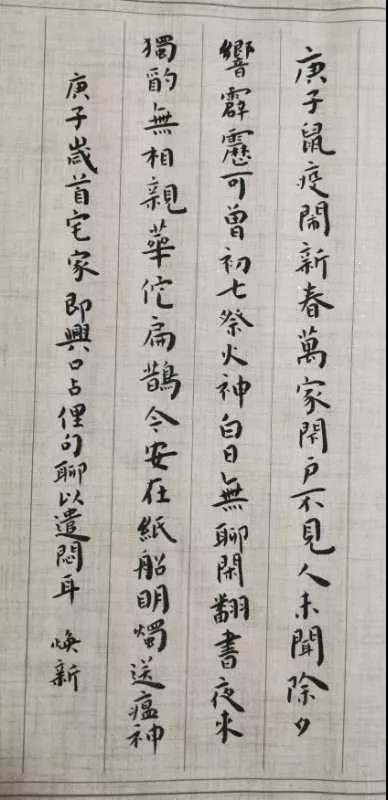 庚子鼠疫鬧新春萬家閉戶不見人未聞除夕
響霹靂可曾初七祭火神白日無聊閑翻書夜來
獨酌無相親華佗扁鵲今安在紙船明燭送瘟神
庚子歲首宅家即興口占俚句聊以遣悶耳 煥新